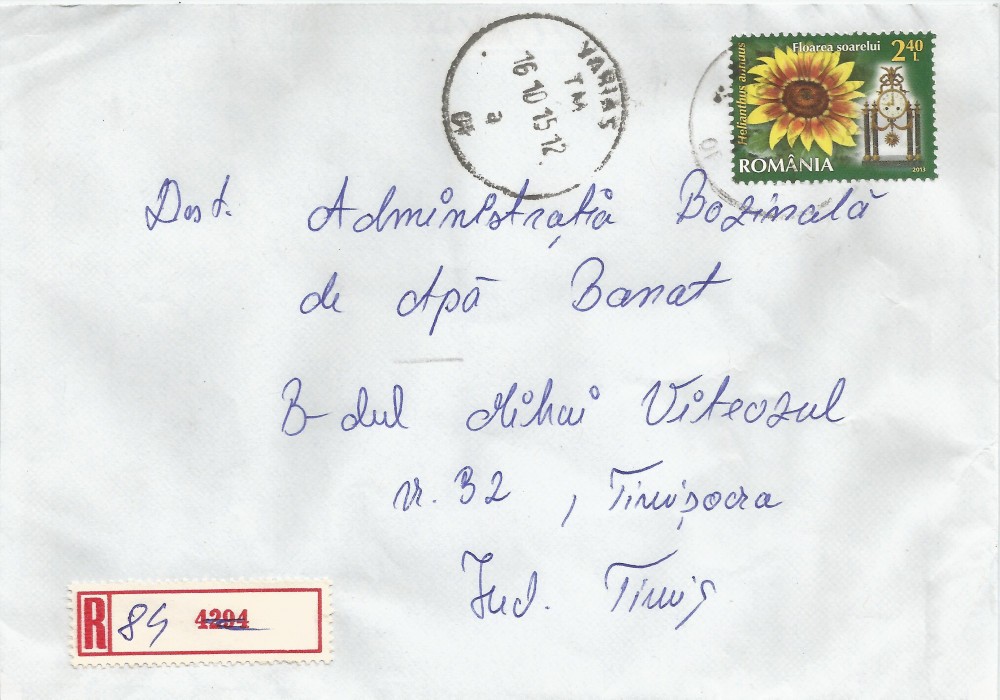 VARIAȘ
TM
16 10 15 12
a
Helianthus annuus
Floarea soarelui
2 40 L
ROMÂNIA
2013
Dest. Administrația Bazinală
de Apă Banat
B-dul Mihai Viteazul
nr. 32, Timișoara
Jud. Timiș
R 84 4294